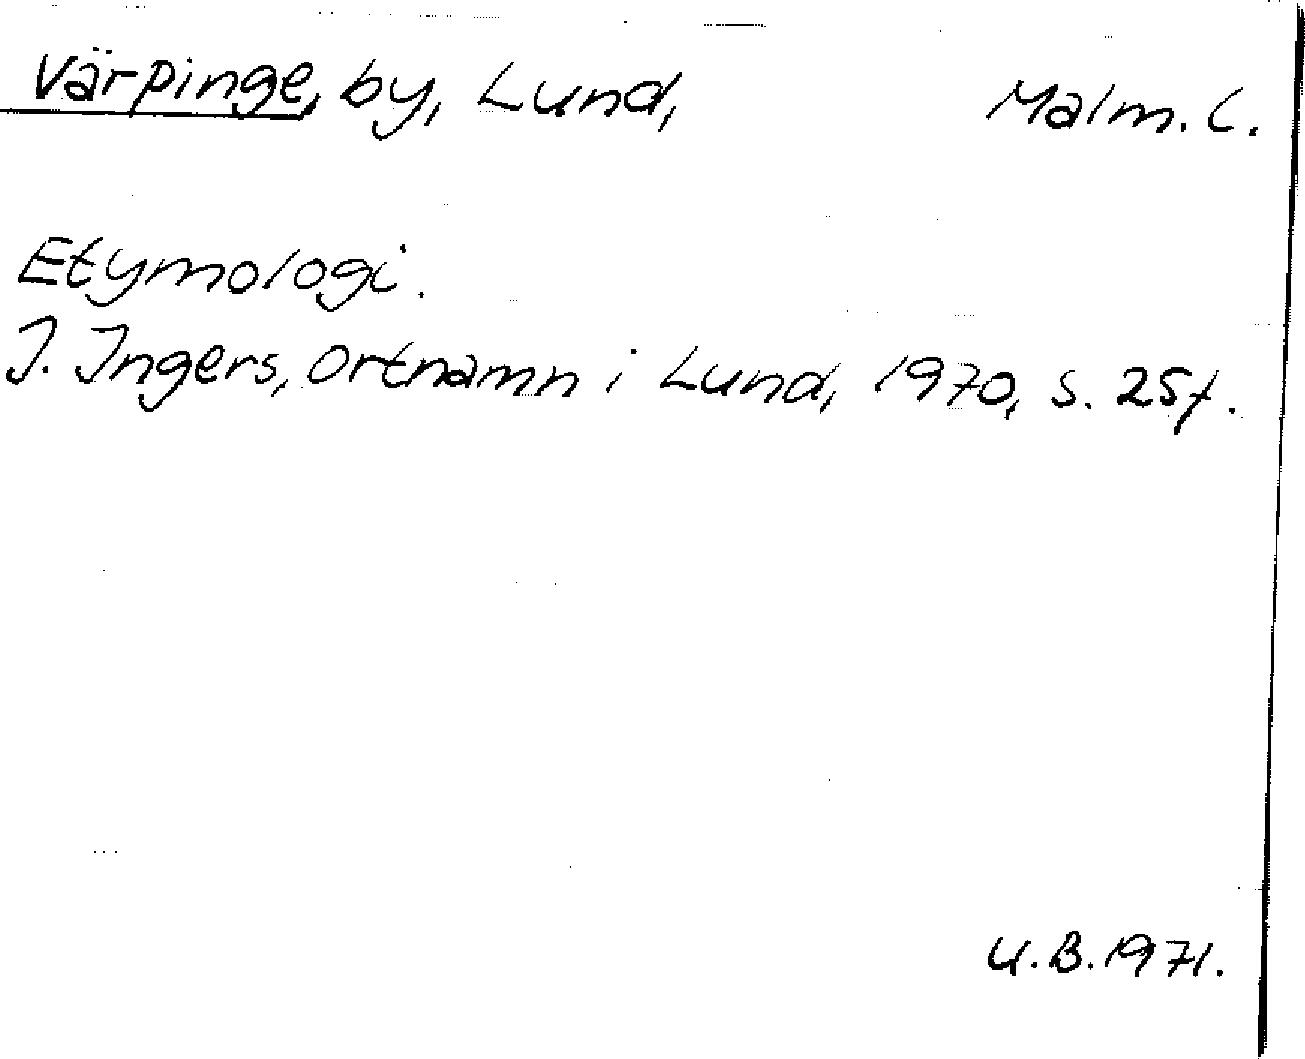 Värpinge, by, Lund, Malm. L.
Etymologi.
J. Ingers, Ortnamn i Lund, 1970, s. 25f.
U.B.1971.